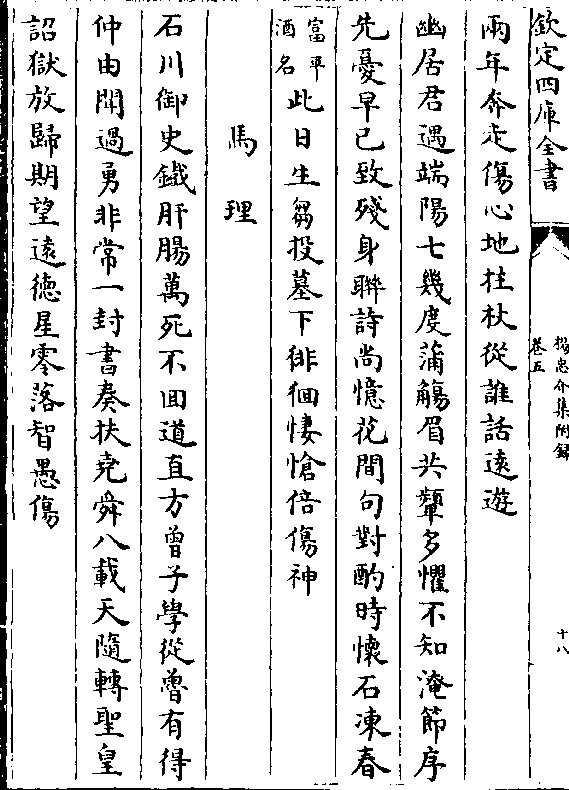 欽定四庫全書
楊忠介集附録
卷五
十八
兩年奔走傷心地拄杖從誰話遠遊
幽居君遇端陽七幾度蒲觴眉共顰多懼不知淹節序
先憂早已致殘身聯詩尚憶花間句對酌時懷石凍春
富平
酒名
此日生芻投墓下徘徊悽愴倍傷神
馬理
石川御史鐵肝腸萬死不回道直方曾子學從魯有得
仲由聞過勇非常一封書奏扶堯舜八載天隨轉聖皇
詔獄放歸期望遠德星零落智愚傷